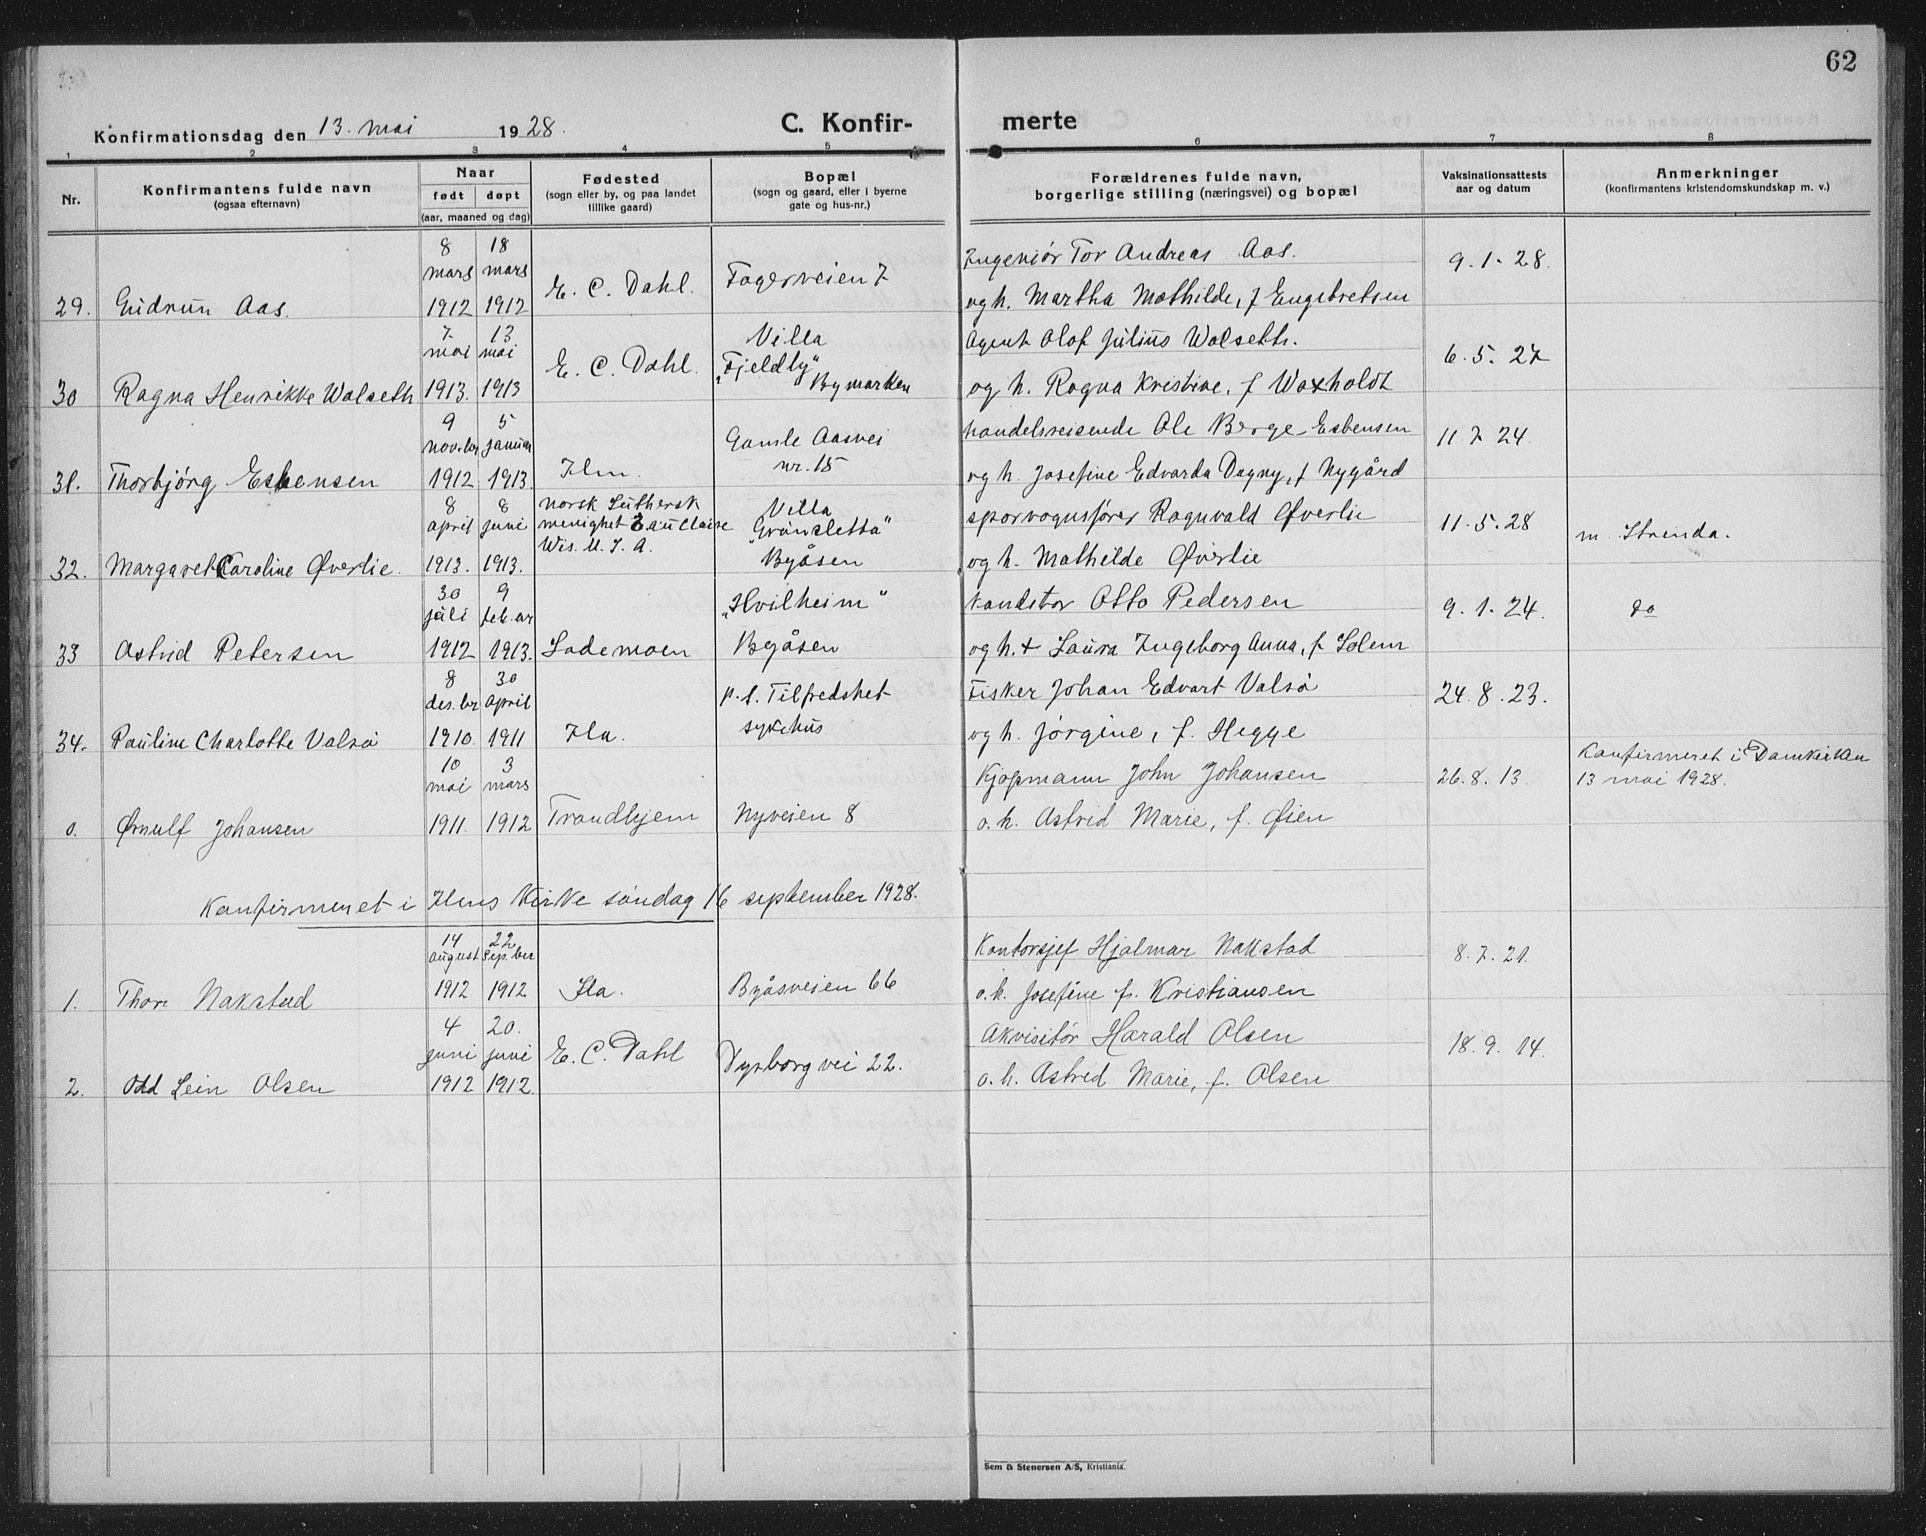 62
Konfirmationsdag den 13. mai 1928.
C. Konfir-
merte
1 2 3 4 5 6 7 8
Nr.
Konfirmantens fulde navn
(ogsaa efternavn)
Naar
født døpt
(aar, maaned og dag)
Fødested
(sogn eller by, og paa landet
tillike gaard)
Bopæl
(sogn og gaard, eller i byerne
gate og hus-nr.)
Forældrenes fulde navn,
borgerlige stilling (næringsvei) og bopæl
Vaksinationsattests
aar og datum
Anmerkninger
(konfirmantens kristendomskundskap m. v.)
8 18
mars mars
29. Gudrun Aas. 1912 1912 E. C. Dahl. Fagerveien 7
Ingeniör Tor Andreas Aas. 9.1.28.
og h. Martha Mathilde, f Engebretsen
7 13
mai mai
30 Ragna Henrikke Walseth 1913. 1913 E. C. Dahl. Villa
"Fjeldly"
Bymarken
Agent Olaf Julius Walseth. 6.5.27
og h. Ragna Kristine, f Waxholdt
9 5
nov.br januar
31. Thorbjørg Esbensen 1912 1913. Ilen. Gamle Aasvei
nr. 15
Handelsreisende Ole Berge Esbensen 11.7.24.
og h. Josefine Edvarda Dagny, f Nygård
8 8
april juni
32. Margaret Caroline Øverlie. 1913. 1913.
norsk Luthersk
menighet Eau Claire
Wis. U. S. A.
Villa
"Grönsletta"
Byåsen
sporvognsfører Ragnvald Øverlie 11.5.28 m. Strinda.
og h. Mathilde Øverlie
30 9
juli feb.ar
33 Astrid Petersen 1912 1913. Lademoen "Hvilheim"
Byåsen
Konditor Otto Pedersen 9.1.24. do
og h. + Laura Ingeborg Anna, f. Solem
8 30
des.br april
34. Pauline Charlotte Valsö 1910. 1911 Ila. p.t. Tilfredshet
sykehus
Fisker Johan Edvart Valsö 24.8.23.
og h. Jørgine, f. Hegge
10 3
mai mars
0. Ørnulf Johansen 1911. 1912 Trondhjem Nyveien 8
Kjøpmann John Johansen 26.8.13. Konfirmeret i Domkirken
13 mai 1928.
o. h. Astrid Marie, f. Øien
Konfirmeret i Ilens Kirke söndag 16 september 1928.
14 22
august Sep.ber
1. Thor Nakstad 1912 1912 Ila. Byåsveien 66
Kontorsjef Hjalmar Nakstad 8.7.21.
o. h. Josefine f. Kristiansen
4 20.
juni juni
2. Odd Lein Olsen 1912 1912. E. C. Dahl Dyrborgvei 22.
Akvisitör Harald Olsen 18.9.14.
o. h. Astrid Marie, f. Olsen
Sem & Stenersen A/S, Kristiania.